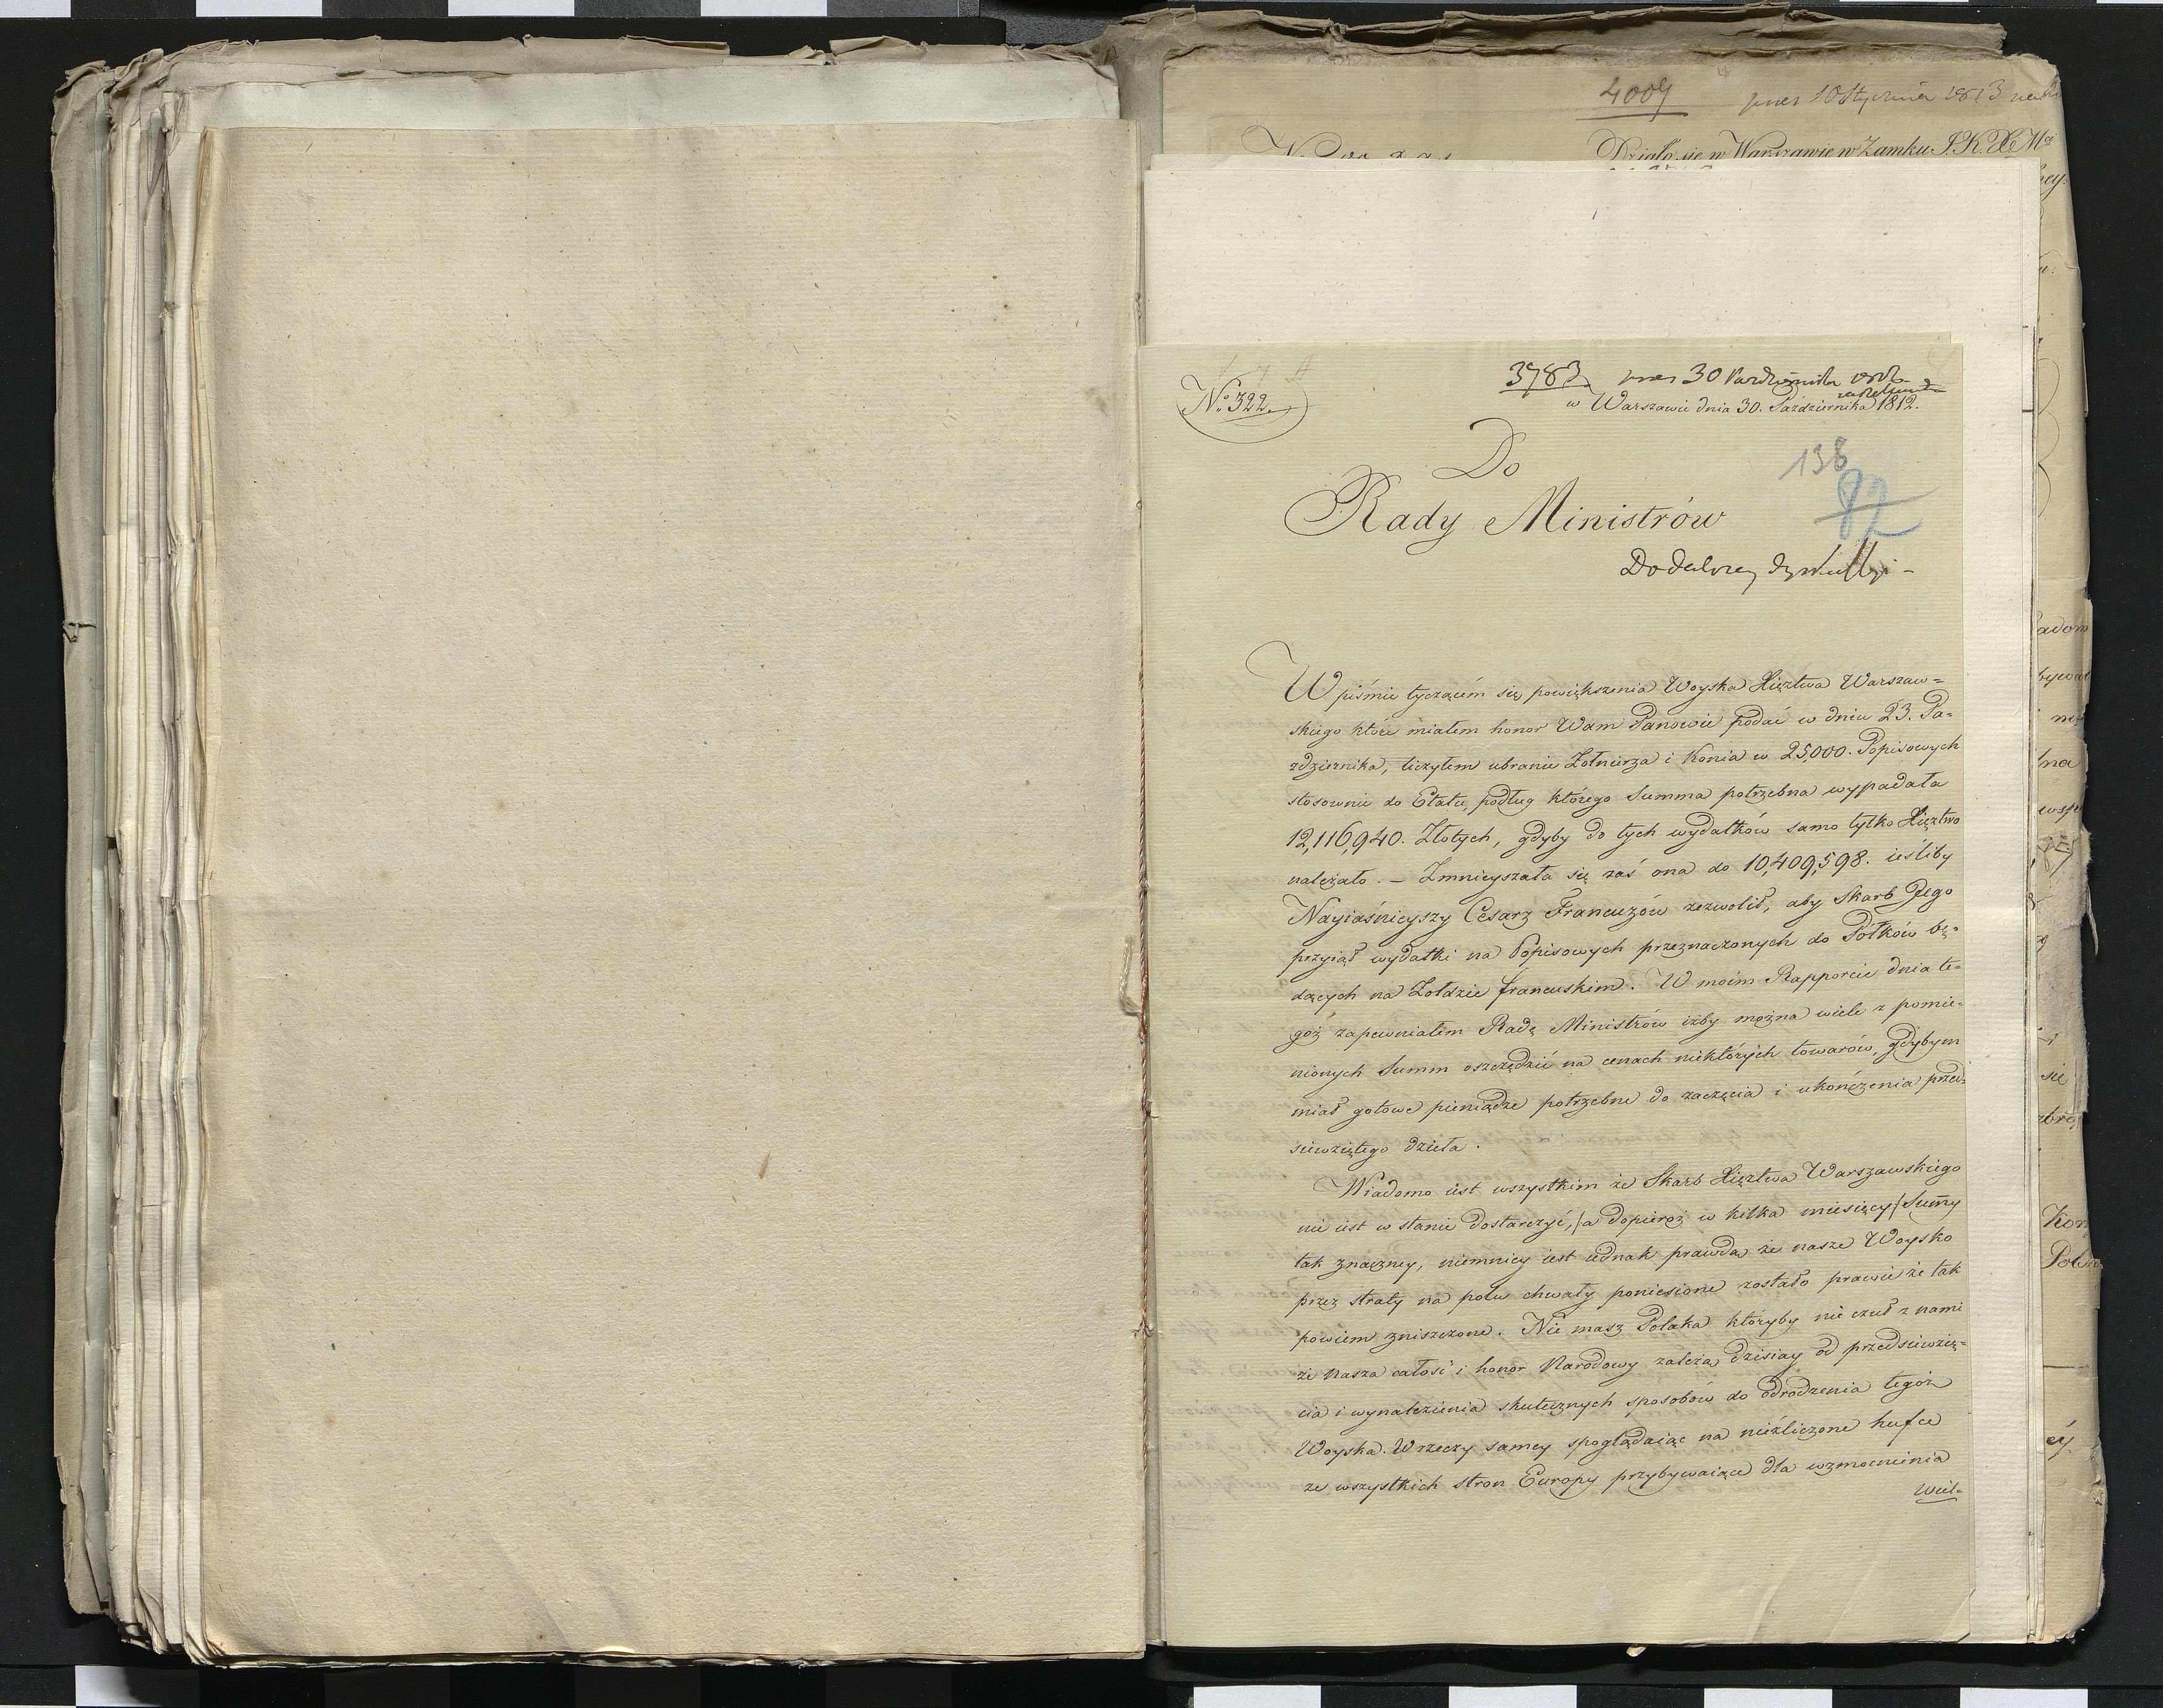 4009
10 Stycznia 1813
Działo się w Warszawie w Zamku J. K. X. Mci
No. 322.
3783 30 Października
w Warszawie dnia 30. Października 1812.
138
82
Do
Rady Ministrów
Do dalszey
W piśmie tyczącém się powiększenia Woyska Xięztwa Warszaw=
skiego które miałem honor Wam Panowie podać w dniu 23. Pa=
zdziernika, liczyłem ubranie Żołnierza i Konia w 25,000. Popisowych
stosownie do Etatu, podług którego Summa potrzebna wypadała
12,116,940. Złotych, gdyby do tych wydatków samo tylko Xięztwo
należało. – Zmnieyszała się zaś ona do 10,409,598. ieśliby
Nayiaśnieyszy Cesarz Francuzów zezwolił, aby Skarb Jego
przyiął wydatki na Popisowych przeznaczonych do Półków bę=
dących na Żołdzie francuskim. W moim Rapporcie dnia te=
goż zapewniałem Radę Ministrów iżby można wiele z pomie=
nionych Summ oszczędzić na cenach niektórych towarów, gdybym
miał gotowe pieniądze potrzebne do zaczęcia i ukończenia przed=
sięwziętego dzieła.
Wiadomo iest wszystkim że Skarb Xięztwa Warszawskiego
nie iest w stanie dostarczyć, /a dopieroż w kilka miesięcy/ Sum̄y
tak znaczney, niemniey iest iednak prawdą że nasze Woysko
przez straty na polu chwały poniesione zostało prawie że tak
powiem zniszczone. Nie masz Polaka któryby nie czuł z nami
że nasza całość i honor Narodowy zależą dzisiay od przedsięwzię=
cia i wynalezienia skutecznych sposobów do odrodzenia tegóż
Woyska. W rzeczy samey spoglądaiąc na niezliczone hufce
ze wszystkich stron Europy przybywaiące dla wzmocnienia
Wiel=